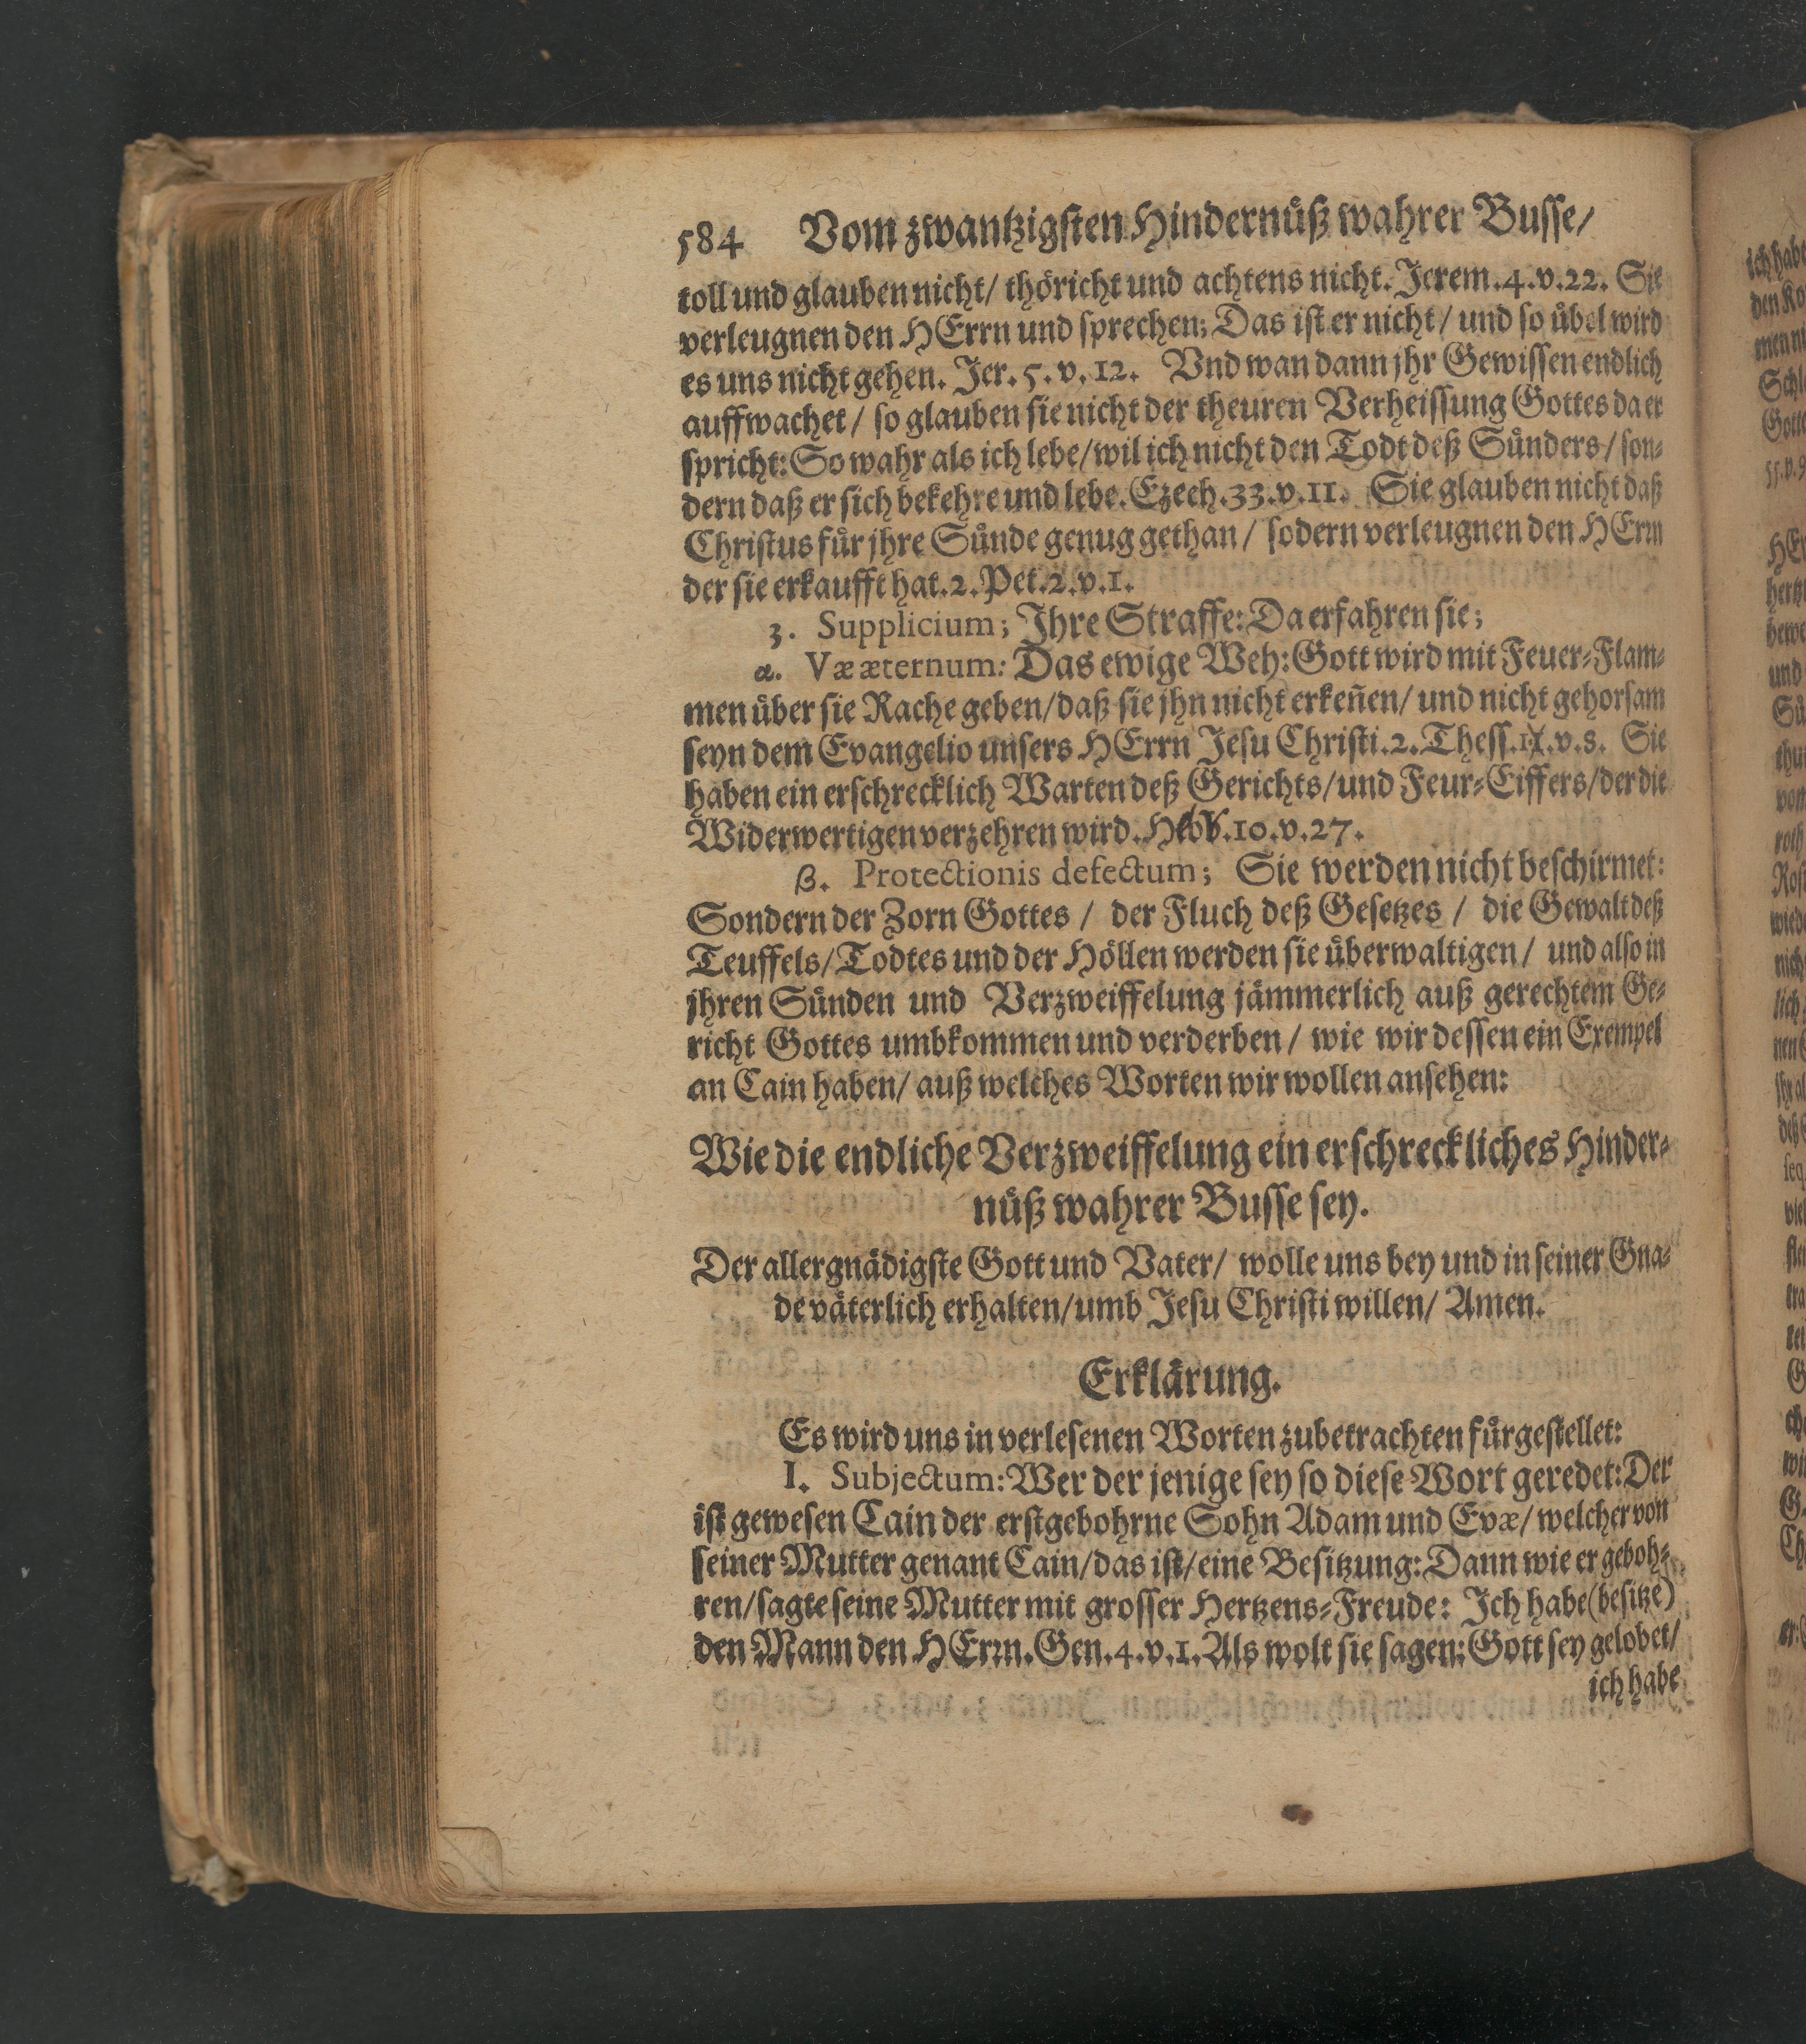 584 Vom zwantzigsten Hindernüß wahrer Busse/
toll und glauben nicht/ thöricht und achtens nicht. Jerem. 4. v. 22. Sie
verleugnen den HErrn und sprechen; Das ist er nicht/ und so übel wird
es uns nicht gehen. Jer. 5. v. 12. Vnd wan dann jhr Gewissen endlich
auffwachet/ so glauben sie nicht der theuren Verheissung Gottes da er
spricht: So wahr als ich lebe/ wil ich nicht den Todt deß Sünders/ son-
dern daß er sich bekehre und lebe. Ezech. 33. v. 11. Sie glauben nicht daß
Christus für jhre Sünde genug gethan/ sodern verleugnen den HErrn
der sie erkaufft hat. 2. Pet. 2. v. 1.
3. Supplicium; Ihre Straffe: Da erfahren sie;
α. Væ æternum: Das ewige Weh: Gott wird mit Feuer-Flam-
men über sie Rache geben/ daß sie jhn nicht erkeñen/ und nicht gehorsam
seyn dem Evangelio unsers HErrn Jesu Christi. 2. Thess. 1. v. 8. Sie
haben ein erschrecklich Warten deß Gerichts/ und Feur-Eiffers/ der die
Widerwertigen verzehren wird. Heb. 10. v. 27.
β. Protectionis defectum; Sie werden nicht beschirmet:
Sondern der Zorn Gottes/ der Fluch deß Gesetzes/ die Gewalt deß
Teuffels/ Todtes und der Höllen werden sie überwaltigen/ und also in
jhren Sünden und Verzweiffelung jämmerlich auß gerechtem Ge-
richt Gottes umbkommen und verderben/ wie wir dessen ein Exempel
an Cain haben/ auß welches Worten wir wollen ansehen:
Wie die endliche Verzweiffelung ein erschreckliches Hinder-
nüß wahrer Busse sey.
Der allergnädigste Gott und Vater/ wolle uns bey und in seiner Gna-
de väterlich erhalten/ umb Jesu Christi willen/ Amen.
Erklärung.
Es wird uns in verlesenen Worten zubetrachten fürgestellet:
I. Subjectum: Wer der jenige sey so diese Wort geredet: Der
ist gewesen Cain der erstgebohrne Sohn Adam und Evæ/ welcher von
seiner Mutter genant Cain/ das ist/ eine Besitzung: Dann wie er geboh-
ren/ sagte seine Mutter mit grosser Hertzens-Freude: Ich habe (besitze)
den Mann den HErrn. Gen. 4. v. 1. Als wolt sie sagen: Gott sey gelobet/
ich habe